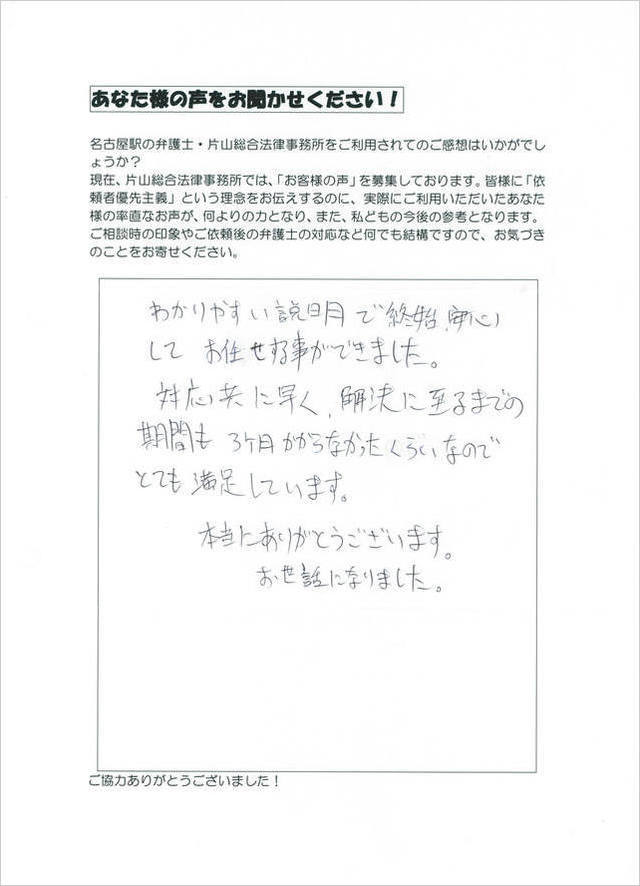 あなた様の声をお聞かせください！
名古屋駅の弁護士・片山総合法律事務所をご利用されてのご感想はいかがでし
ょうか？
現在、片山総合法律事務所では、「お客様の声」を募集しております。皆様に「依
頼者優先主義」という理念をお伝えするのに、実際にご利用いただいたあなた
様の率直なお声が、何よりの力となり、また、私どもの今後の参考となります。
ご相談時の印象やご依頼後の弁護士の対応など何でも結構ですので、お気づき
のことをお寄せください。
わかりやすい説明で終始、安心
して お任せする事ができました。
対応共に早く、解決に至るまでの
期間も 3ケ月かからなかったくらいなので
とても満足しています。
本当にありがとうございます。
お世話になりました。
ご協力ありがとうございました！